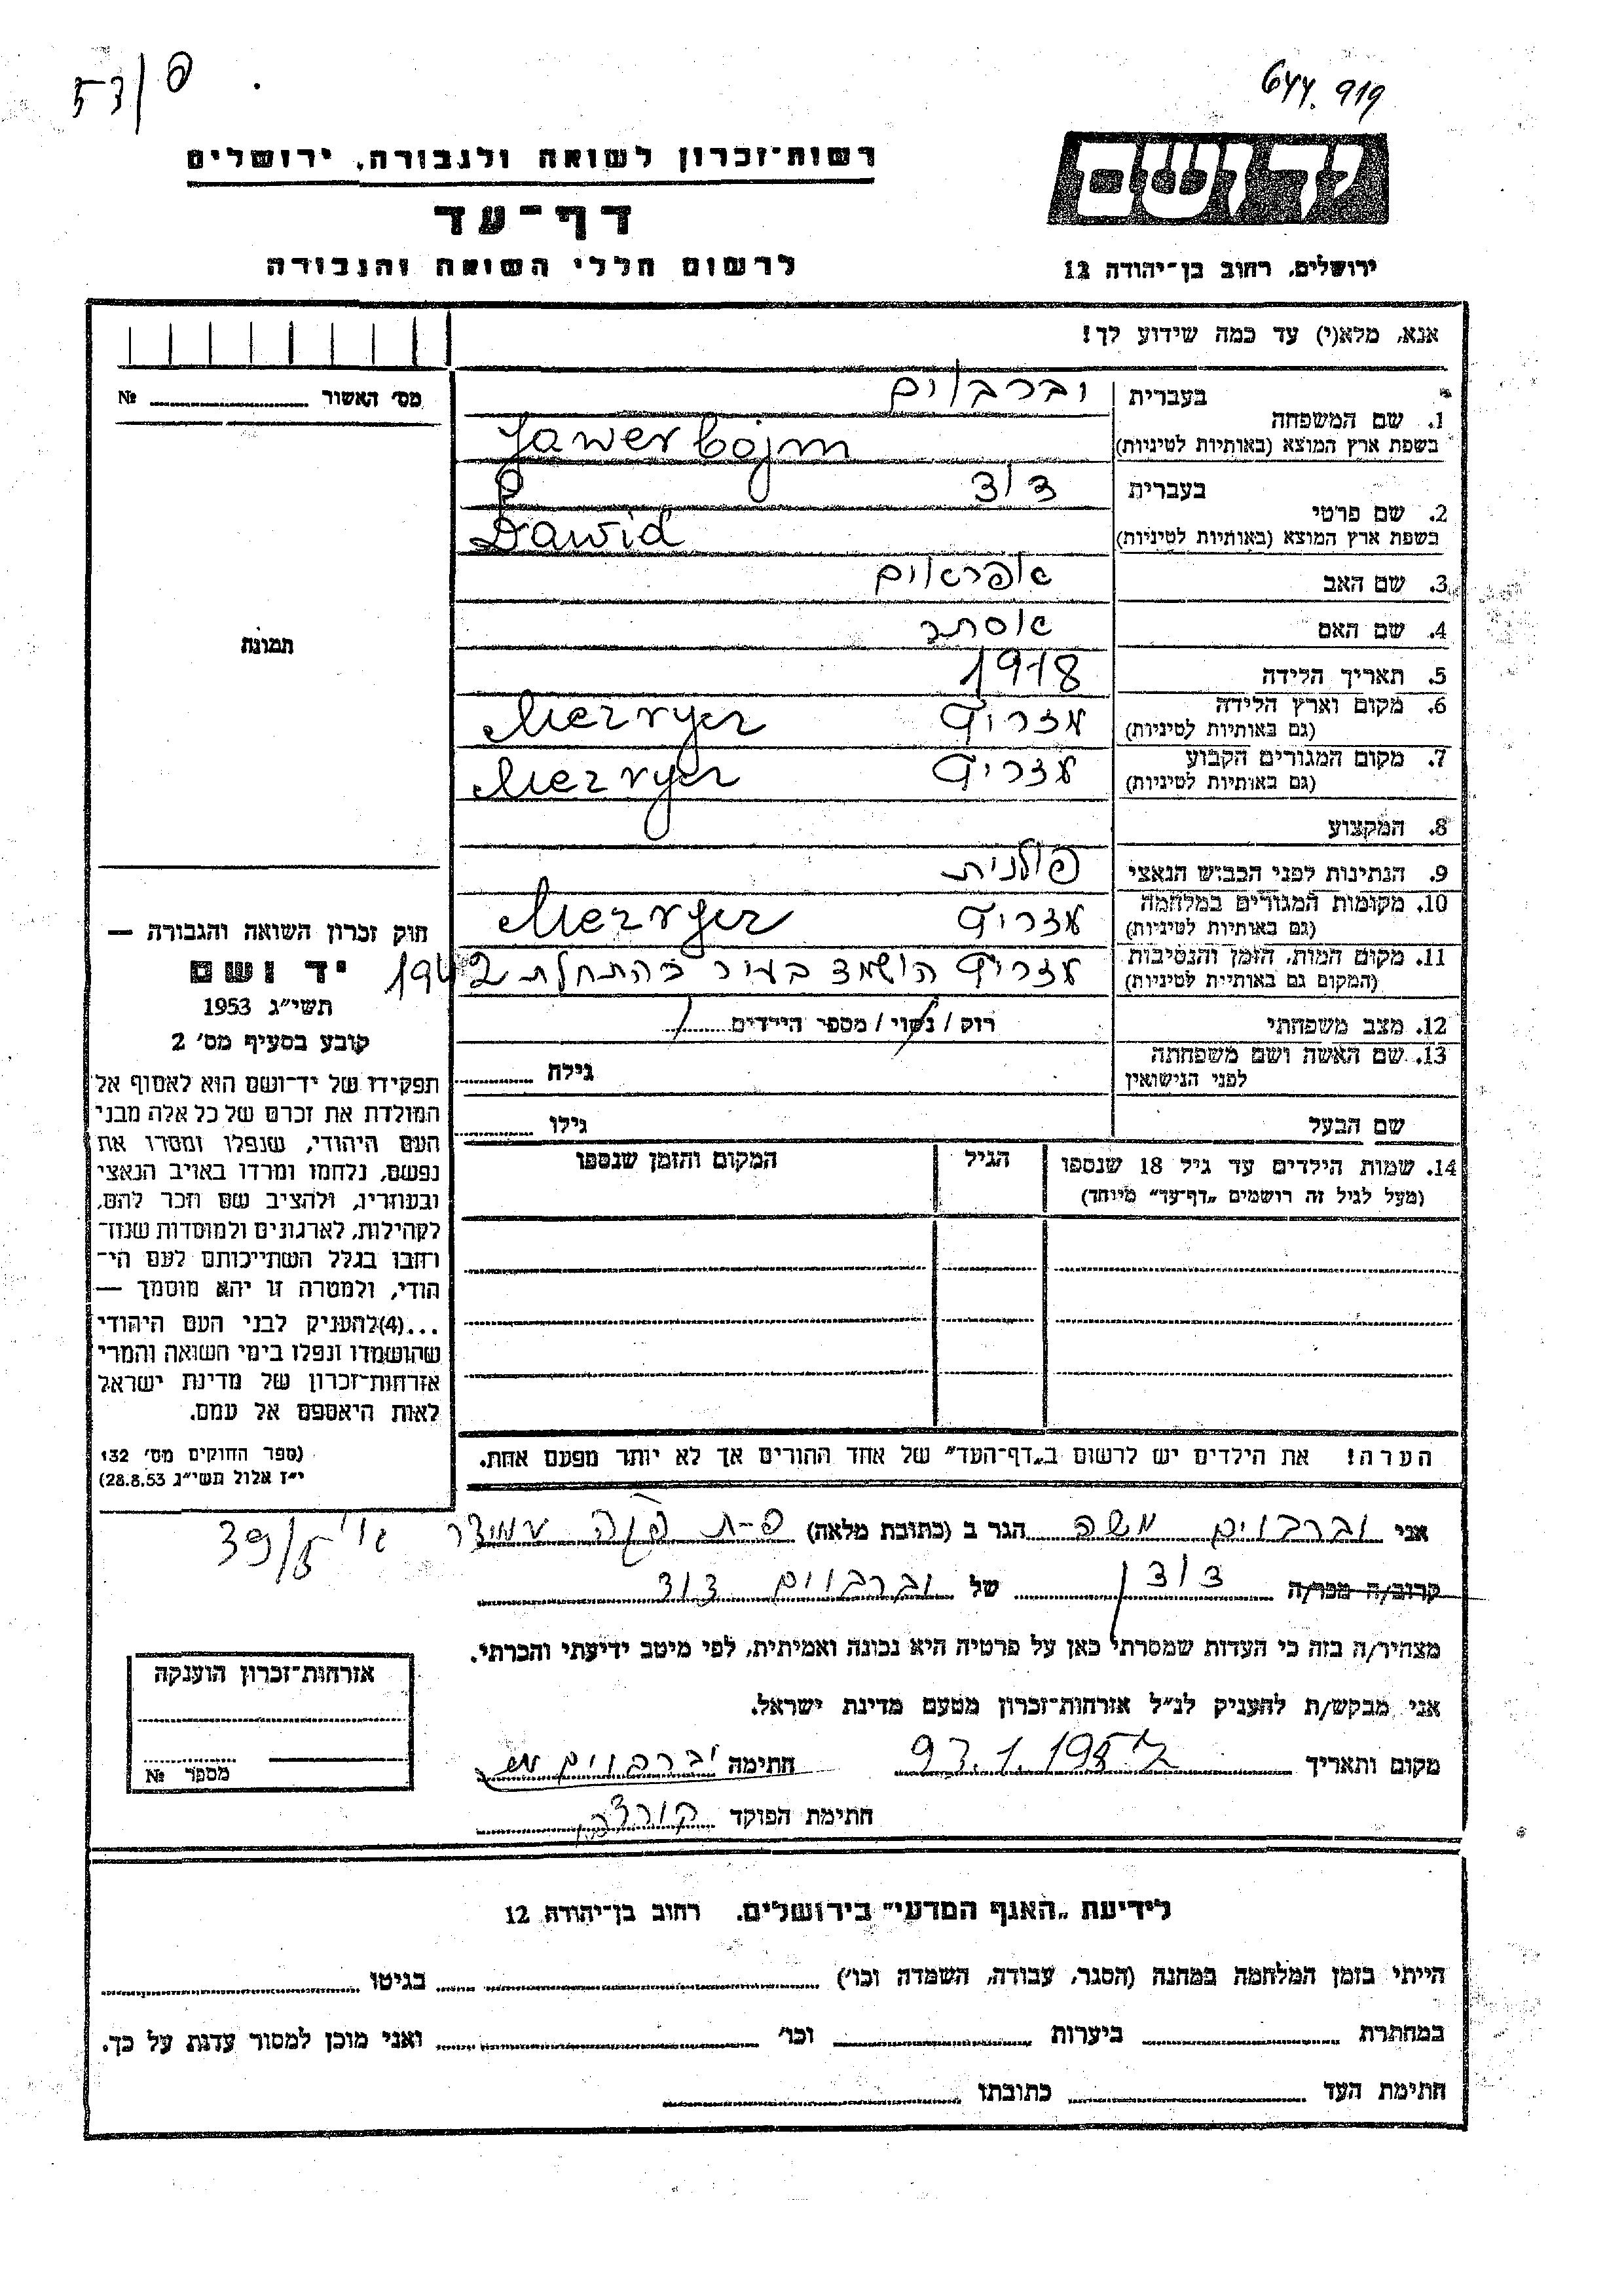 53/פ
644.919
רשות־זכרון לשואה ולגבורה, ירושלים
דף־עד
לרשום חללי השואה והגבורה
יד ושם
ירושלים, רחוב בן־יהודה 12
אנא, מלא(י) עד כמה שידוע לך!
מס׳ האשור № 
תמונה
1. שם המשפחה
בעברית
וברבוים
בשפת ארץ המוצא (באותיות לטיניות)
Jawerbojm
2. שם פרטי
בעברית
דוד
בשפת ארץ המוצא (באותיות לטיניות)
Dawid
3. שם האב
אפראים
4. שם האם
אסתר
5. תאריך הלידה
1918
6. מקום וארץ הלידה
(גם באותיות לטיניות)
מזריץ Mezryez
7. מקום המגורים הקבוע
(גם באותיות לטיניות)
מזריץ Mezryez
8. המקצוע
9. הנתינות לפני הכבוש הנאצי
פולנית
10. מקומות המגורים במלחמה
(גם באותיות לטיניות)
מזריץ Mezryez
11. מקום המות, הזמן והנסיבות
(המקום גם באותיות לטיניות)
מזריץ הושמד בעיר בהתחלת 1942
12. מצב משפחתי
רוק / נשוי / מספר הילדים
13. שם האשה ושם משפחתה
לפני הנישואין
גילה
שם הבעל
גילו
14. שמות הילדים עד גיל 18 שנספו
(מעל לגיל זה רושמים „דף־עד" מיוחד)
הגיל
המקום והזמן שנספו
הערה! את הילדים יש לרשום ב„דף־העד" של אחד ההורים אך לא יותר מפעם אחת.
חוק זכרון השואה והגבורה —
יד ושם
תשי״ג 1953
קובע בסעיף מס׳ 2
תפקידו של יד־ושם הוא לאסוף אל
המולדת את זכרם של כל אלה מבני
העם היהודי, שנפלו ומסרו את
נפשם, נלחמו ומרדו באויב הנאצי
ובעוזריו, ולהציב שם וזכר להם,
לקהילות, לארגונים ולמוסדות שנח־
רבו בגלל השתייכותם לעם הי־
הודי, ולמטרה זו יהא מוסמך —
...(4)להעניק לבני העם היהודי
שהושמדו ונפלו בימי השואה והמרי
אזרחות־זכרון של מדינת ישראל
לאות היאספם אל עמם.
(ספר החוקים מס׳ 132
י״ז אלול תשי״ג 28.8.53)
אני וברבוים משה הגר ב (כתובת מלאה) פ-ת 39/5
קרוב/ה מכר/ה דוד של וברבוים דוד
מצהיר/ה בזה כי העדות שמסרתי כאן על פרטיה היא נכונה ואמיתית, לפי מיטב ידיעתי והכרתי.
אני מבקש/ת להעניק לנ״ל אזרחות־זכרון מטעם מדינת ישראל.
מקום ותאריך חתימה וברבוים מש
חתימת הפוקד
אזרחות־זכרון הוענקה
מספר №
לידיעת „האגף המדעי" בירושלים. רחוב בן־יהודה 12
הייתי בזמן המלחמה במחנה (הסגר, עבודה, השמדה וכו׳) בגיטו
במחתרת ביערות וכו׳ ואני מוכן למסור עדות על כך.
חתימת העד כתובתו